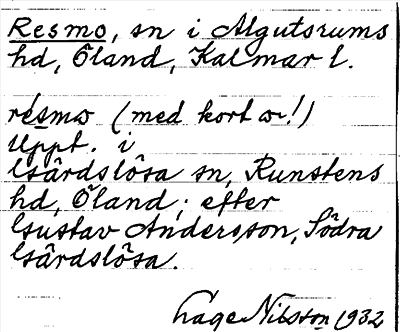 Resmo, sn i Algutsrums
hd, Öland, Kalmar l.
résmω (med kort ω!)
Uppt. i
Gärdslösa sn, Runstens
hd, Öland; efter
Gustav Andersson, Södra
Gärdslösa.
Låge Nilsson 1932